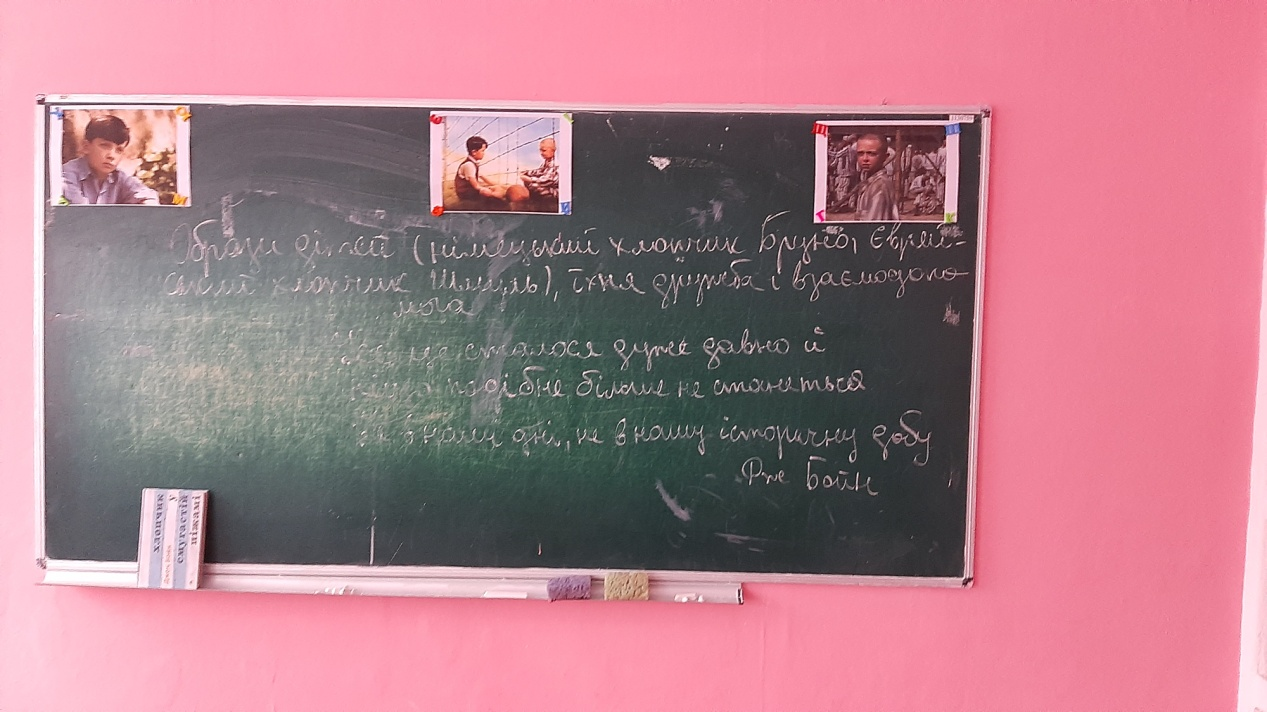 Образи дітей (німецький хлопчик Бруно, єврей-
ський хлопчик Шмуль), їхня дружба і взаємодопо-
мога
Усе це сталося дуже давно й
нічого подібне більше не станеться
Не в наші дні, не в нашу історичну добу
Рже Бойн
хлопчик
у
смугастій
піжамі